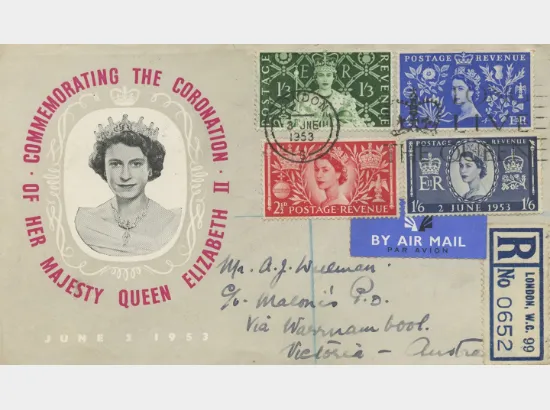 COMMEMORATING THE CORONATION
OF HER MAJESTY QUEEN ELIZABETH II
JUNE 2 1953
POSTAGE REVENUE
E R
1/3 1/3
POSTAGE REVENUE
E II R
LONDON
3 JNE
1953
POSTAGE REVENUE
2½D
POSTAGE REVENUE
E II R
2 JUNE 1953
1/6 1/6
BY AIR MAIL
PAR AVION
R
LONDON, W.C. 99
No 0652
Mr. A.J.
c/o P.O.
Via Warrnambool.
Victoria –